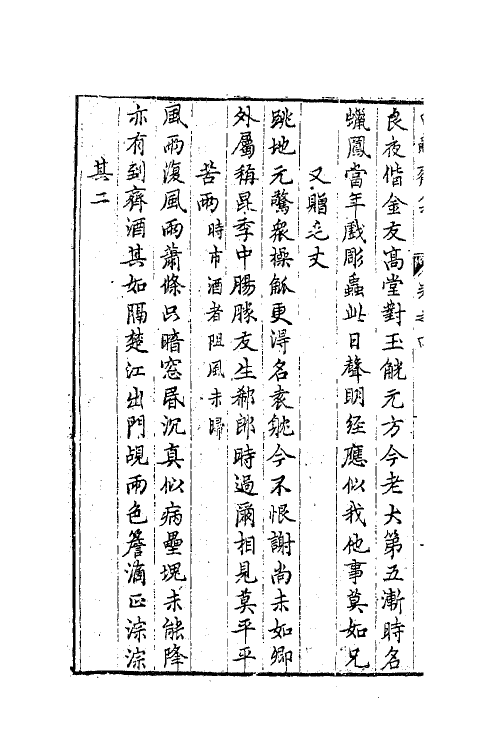 良夜偕金友高堂對玉觥元方今老大第五漸時名
蠟鳳當年戲彫蟲此日聲明經應似我他事莫如兄
又贈允丈
跳地元驚衆操觚更得名袁躭今不恨謝尚未如卿
外屬稱昆季中腸勝友生鄰郎時過爾相見莫平平
苦雨時市酒者阻風未歸
風雨復風雨蕭條只暗窓昏沉真似病壘塊未能降
亦有到齊酒其如隔楚江出門覘雨色簷滴正淙淙
其二